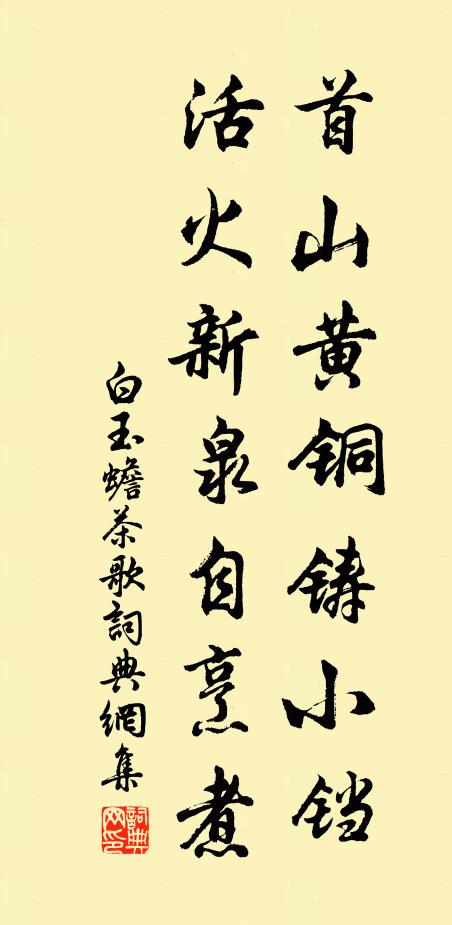 首山黄铜铸小铛
活火新泉自烹煮
白玉蟾茶歌詞典網集
詞典網印